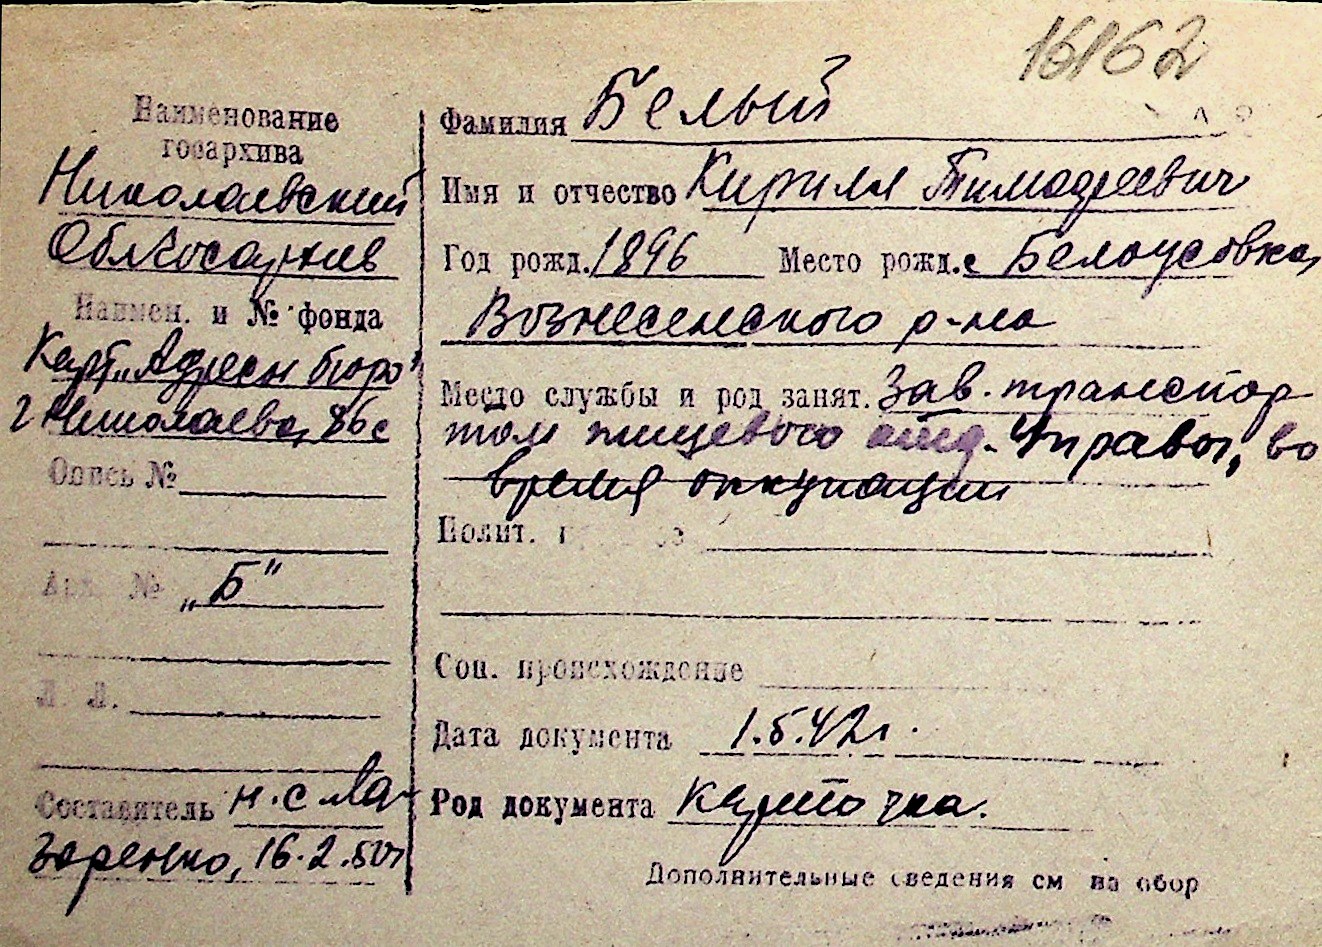 16162
Наименование
госархива
Николаевский
Облгосархив
Наимен. и № фонда
Карт. „Адресн бюро“
г Николаева, 86с
Опись №
Арх. № „Б“
Л. Л.
Составитель н.с Ла-
заренко, 16.2.50г
Фамилия Белый
Имя и отчество Кирилл Тимофеевич
Год рожд. 1896 Место рожд. с Белоусовка,
Вознесенского р-на
Место службы и род занят. Зав. транспор
том пищевого отд. Управы, во
время оккупации
Полит.
Соц. происхождение
Дата документа 1.5.42г.
Род документа Карточка.
Дополнительные сведения см на обор